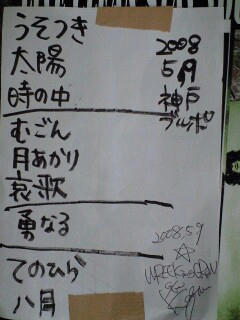 うそつき
太陽
時の中
むごん
月あかり
哀歌
勇なる
てのひら
八月
2008
5月
神戸
ブルポ
2008.5.9